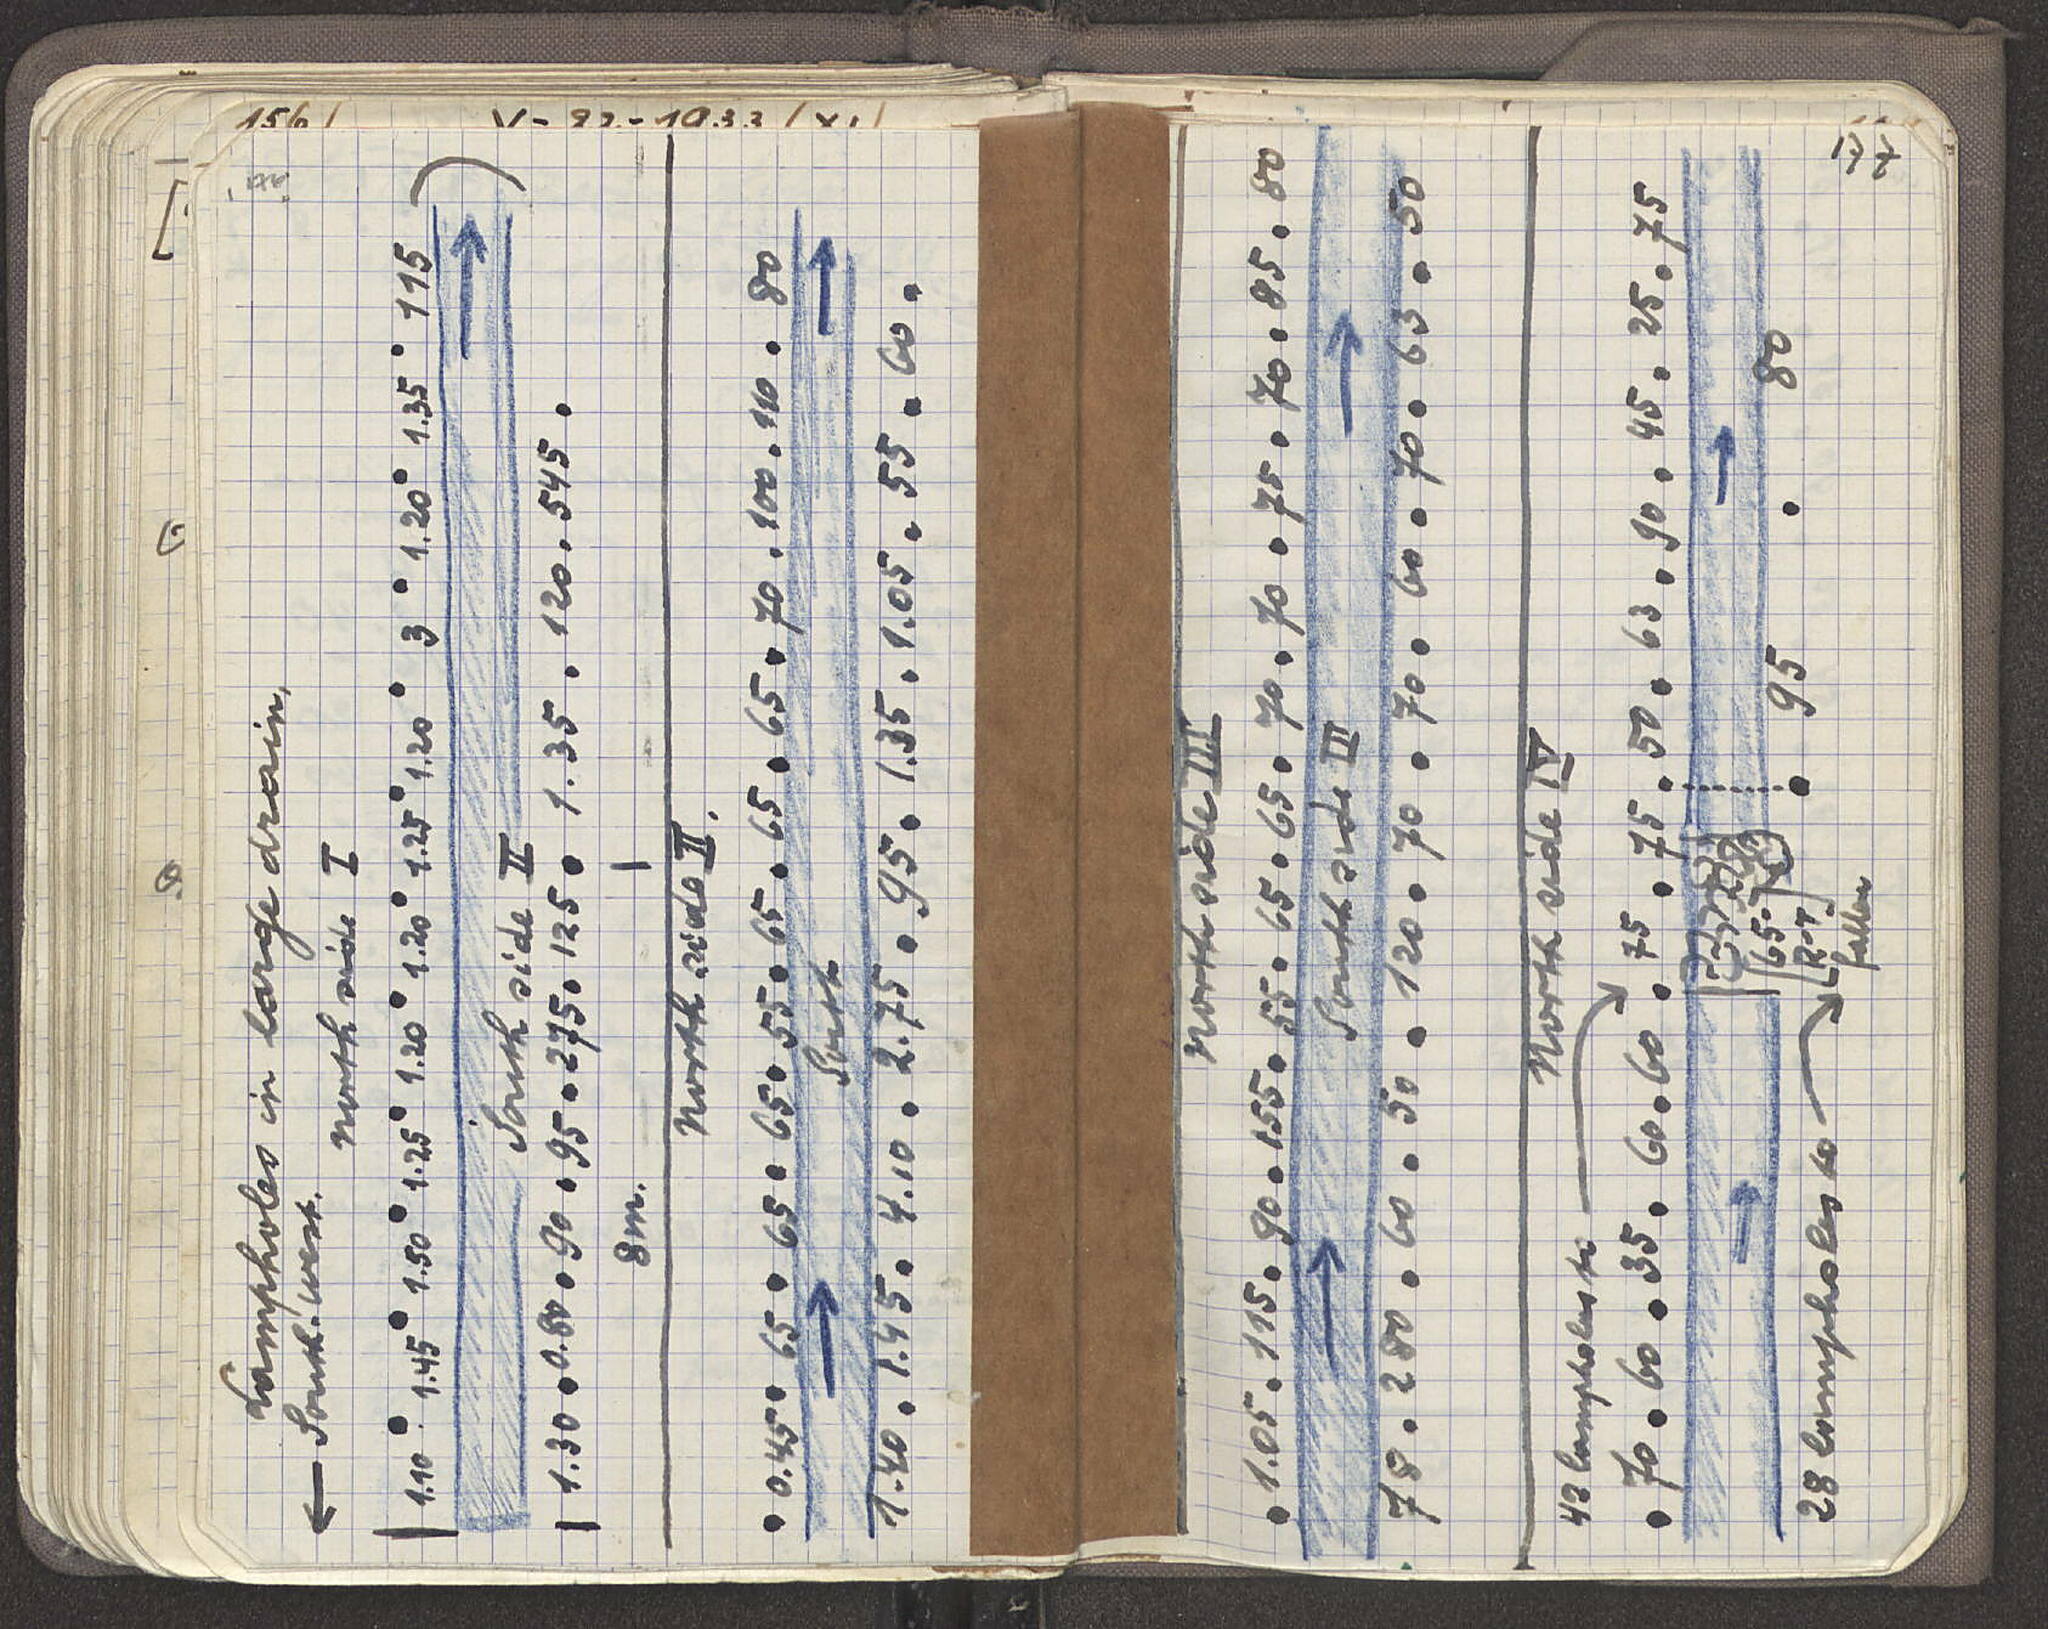 156 V-22-1933 / XI
Lampholes in large drain,
← South. west.
north side I
1.10 • 1.45 • 1.50 • 1.25 • 1.20 • 1.20 • 1.25 • 1.20 • 3 • 1.20 • 1.35 • 115
South side II
1.30 • 0.80 • 90 • 95 • 275 • 125 • 1.35 • 120 • 545 •
8m.
North side II.
• 0.45 • 65 • 65 • 65 • 65 • 55 • 65 • 65 • 65 • 70 • 100 • 110 • 80
South
1.40 • 1.45 • 4.10 • 2.75 • 95 • 1.35 • 1.05 • 55 • 60 •
North side III
• 1.05 • 115 • 90 • 155 • 55 • 65 • 65 • 70 • 70 • 75 • 70 • 85 • 80
South side III
78 • 280 • 60 • 50 • 120 • 70 • 70 • 60 • 70 • 63 • 50
North side IV
43 lampholes to
• 70 • 60 • 35 • 60 • 60 • 75 • 75 • 50 • 63 • 90 • 45 • 25 • 75
65
fallen
• 95 • 80
28 lampholes to